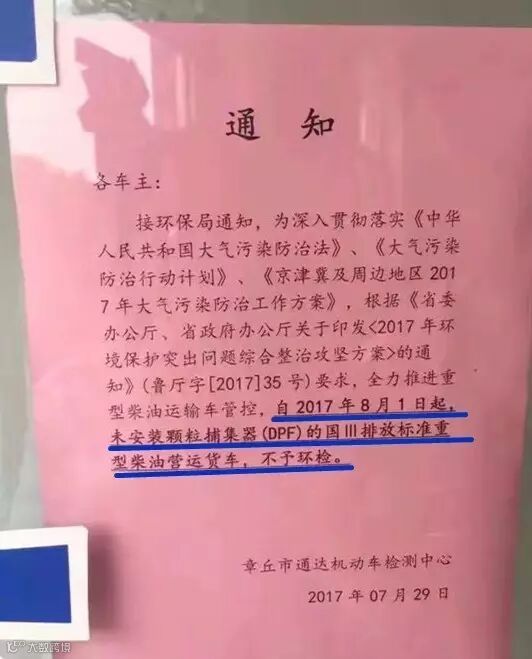 通 知
各车主：
接环保局通知，为深入贯彻落实《中华
人民共和国大气污染防治法》、《大气污染
防治行动计划》、《京津冀及周边地区2017
7年大气污染防治工作方案》，根据《省委
办公厅、省政府办公厅关于印发<2017年环
境保护突出问题综合整治攻坚方案>的通
知》(鲁厅字[2017]35号)要求，全力推进重
型柴油运输车管控，自2017年8月1日起，
未安装颗粒捕集器(DPF)的国Ⅲ排放标准重
型柴油营运货车，不予环检。
章丘市通达机动车检测中心
2017年07月29日
大数跨境